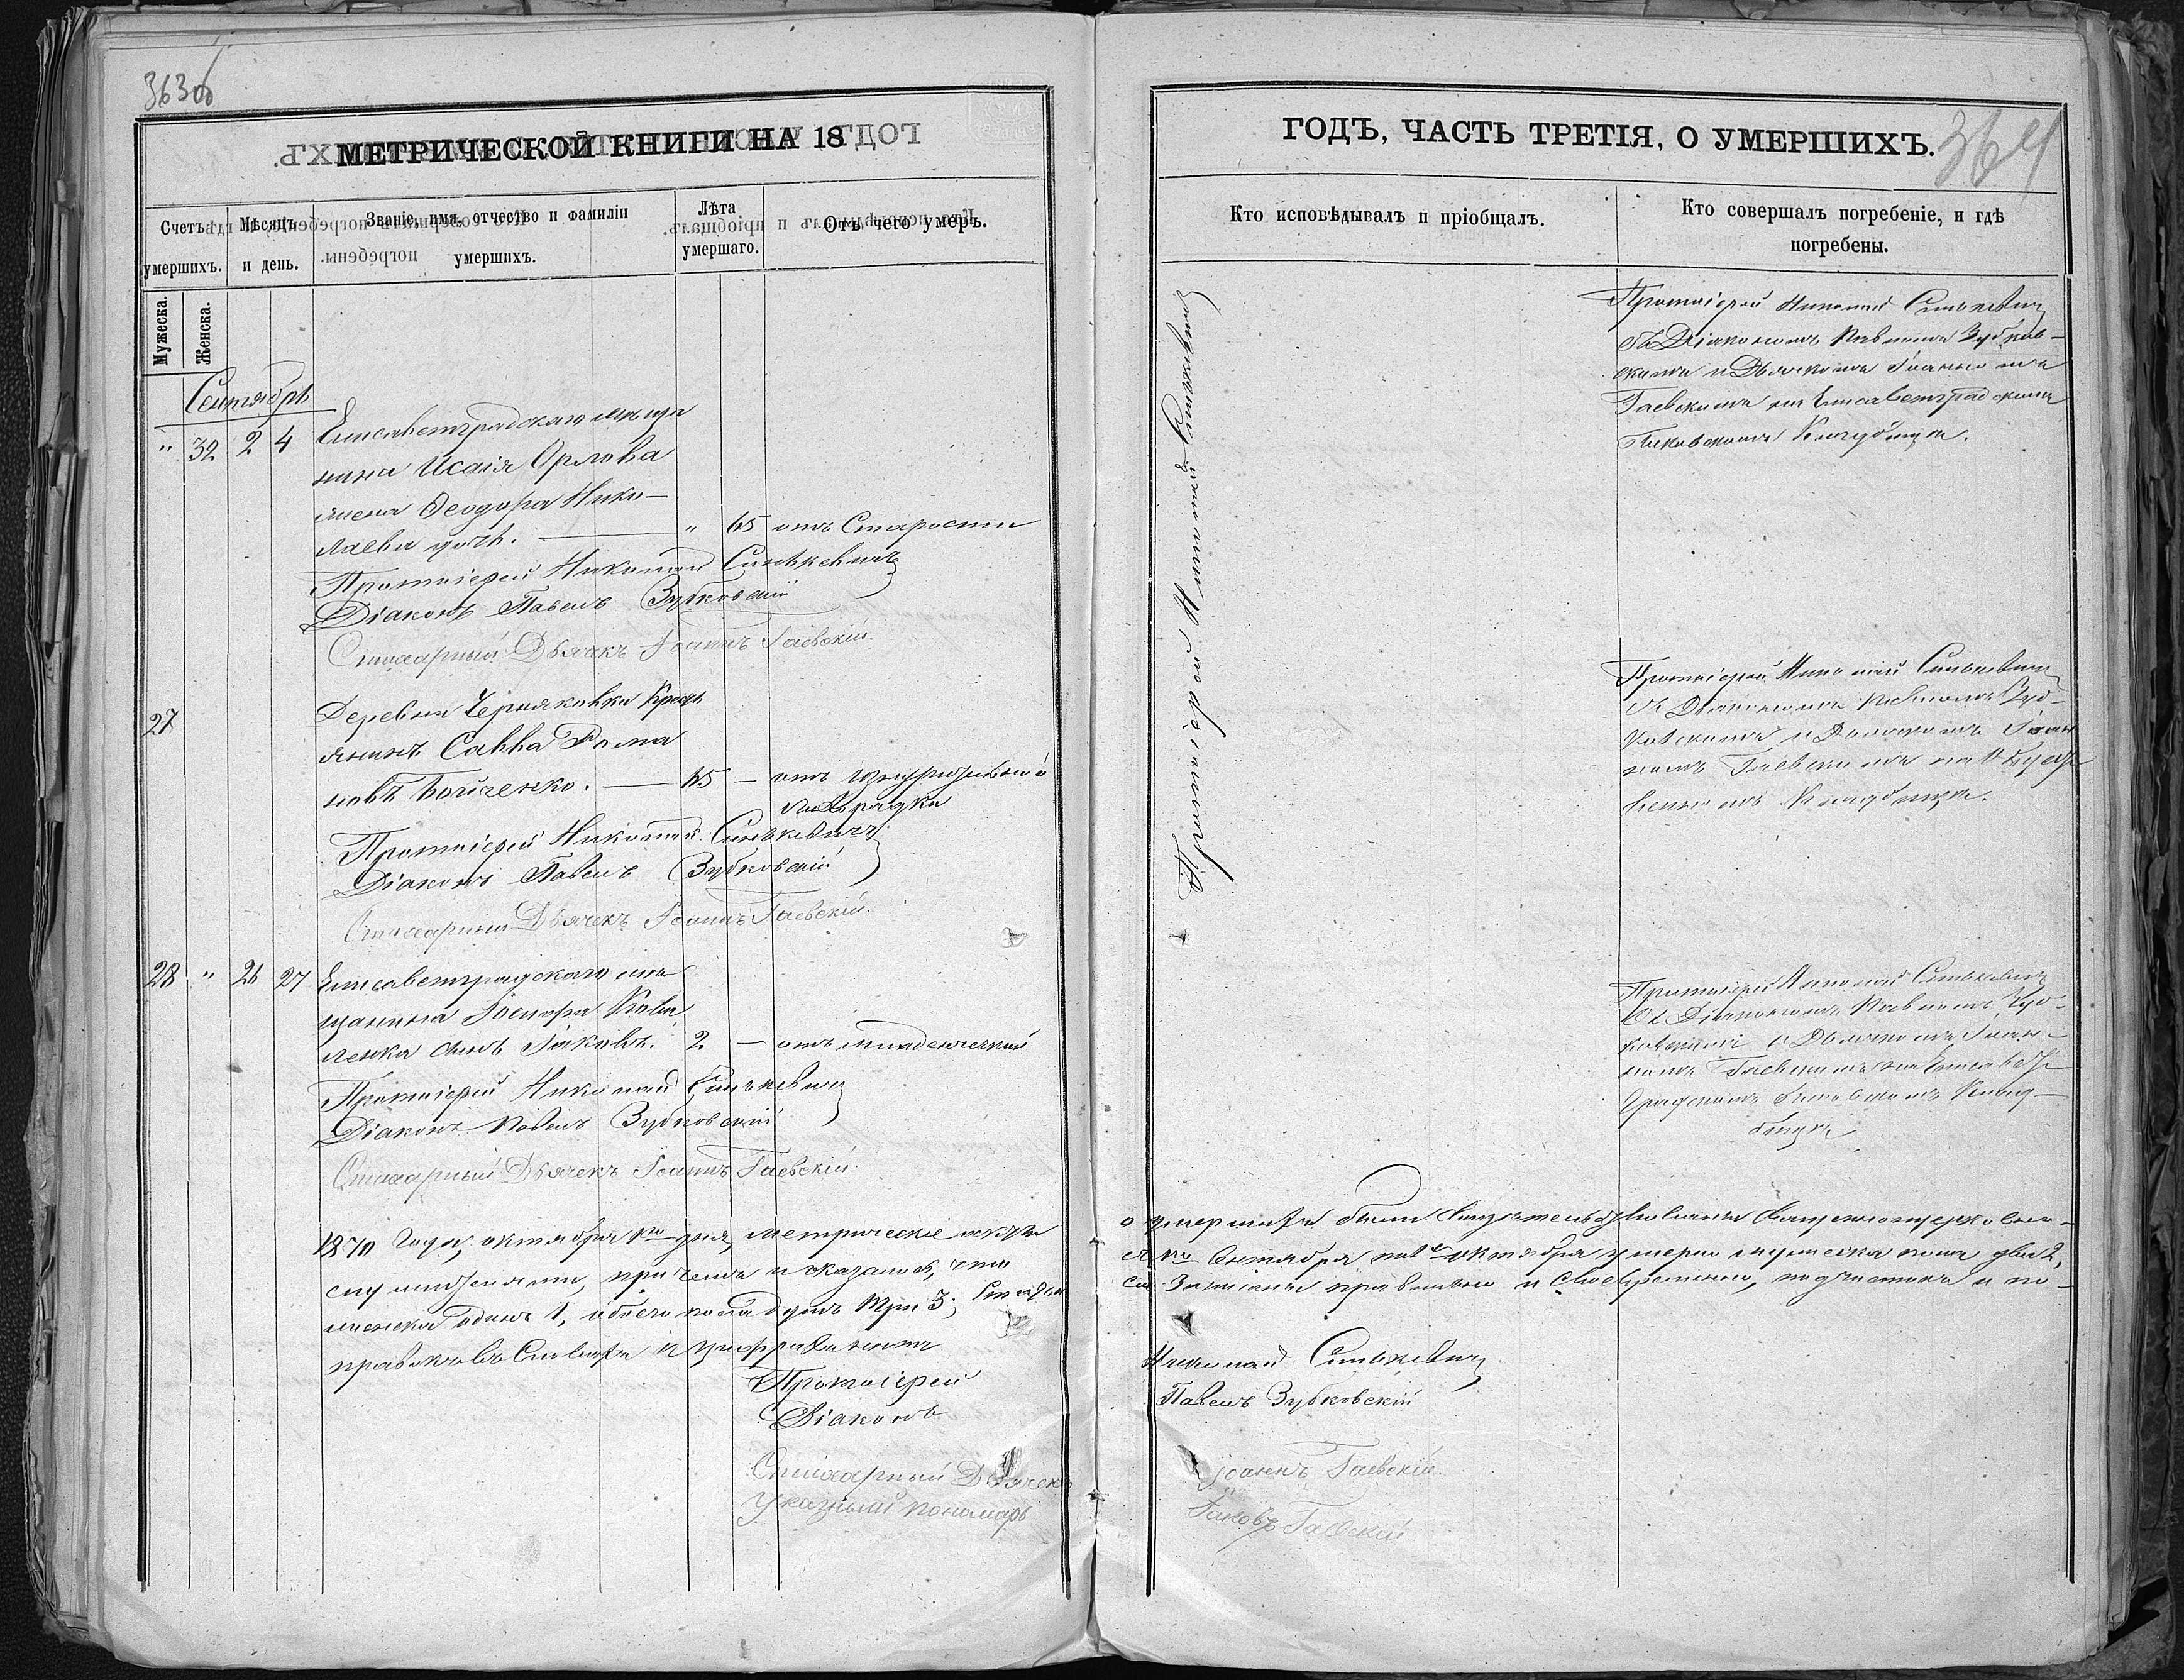 363об
МЕТРИЧЕСКОЙ КНИГИ НА 18
Счетъ умершихъ.
Мужеска.
Женска.
Мѣсяцъ и день.
Званіе, имя, отчество и фамиліи умершихъ.
Лѣта умершаго.
Отъ чего умеръ.
Сентябрь
" 32 2 4 Елисаветградскаго мѣща
нина Исаія Орлова
жена Ѳеодора Нико-
лаева дочь. — " 65 отъ Старости
Протоіерей Николай Синькевичъ
Діаконъ Павелъ Зубковскій
Стихарный Дьячекъ Іоаннъ Гаевскій.
27 Деревни Черняховки Крест
янинъ Савва Рома
новъ Бойченко. — 65 — отъ изнурительной
лихорадки
Протоіерей Николай Синькевичъ
Діаконъ Павелъ Зубковскій
Стихарный Дьячекъ Іоаннъ Гаевскій.
28 " 26 27 Елисаветградскаго мѣ
щанина Іосифа Кова
ленка сынъ Іаковъ. 2 — отъ младенческой
Протоіерей Николай Синькевичъ
Діаконъ Павелъ Зубковскій
Стихарный Дьячекъ Іоаннъ Гаевскій
1870 Года, октября 1го дня, метрическіе акты
при чемъ оказалось, что
женска одинъ 1, обоего пола душъ три 3;
правокъ въ словахъ и цифрахъ нѣтъ
Протоіерей
Діаконъ
Стихарный Дьячекъ
Указный пономарь
ГОДЪ, ЧАСТЬ ТРЕТІЯ, О УМЕРШИХЪ.
364
Кто исповѣдывалъ и пріобщалъ.
Кто совершалъ погребеніе, и гдѣ погребены.
Протоіерей Николай Синькевичъ
Протоіерей Николай Синькевичъ
съ Діакономъ Павломъ Зубков-
скимъ и Дьячкомъ Іоанномъ
Гаевскимъ на Елисаветградскомъ
Кладбищѣ.
Протоіерей Николай Синькевичъ
съ Діакономъ Павломъ Зуб-
ковскимъ и Дьячкомъ Іоан
номъ Гаевскимъ на
Кладбищѣ.
Протоіерей Николай Синькевичъ
съ Діакономъ Павломъ Зуб-
ковскимъ и Дьячкомъ Іоан-
номъ Гаевскимъ на Елисавет-
градскомъ Клад-
бищѣ
о умершихъ были свидѣтельствованы священноцерковно-
съ 1го Сентября по 1е октября умерло мужеска пола два 2,
записаны правильно и своевременно, подчистокъ и по-
Николай Синькевичъ
Павелъ Зубковскій
Іоаннъ Гаевскій.
Іаковъ Гаевскій